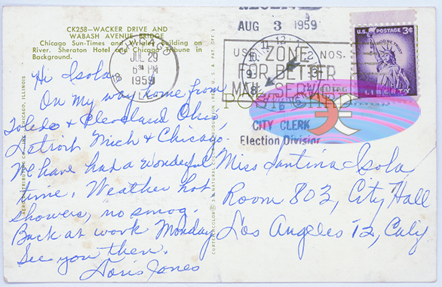 CK258—WACKER DRIVE AND
WABASH AVENUE BRIDGE
Chicago Sun-Times and Building on
River. Sheraton Hotel and Chicago Tribune in
Background.
JUL 29
PM
1959
Hi Isola,
On my way home from
Toledo & Cleveland Ohio
Detroit Mich & Chicago.
We have had a wonderful
time. Weather hot
showers, no smog.
Back at work Monday
See you then.
Doris Jones
AUG 3 1959
USE ZONE NOS.
FOR BETTER
MAIL SERVICE
POST CARD
CITY CLERK
Election Division
U.S. POSTAGE 3¢
LIBERTY
Miss Santina Isola,
Room 803, City Hall
Los Angeles 12, Caly